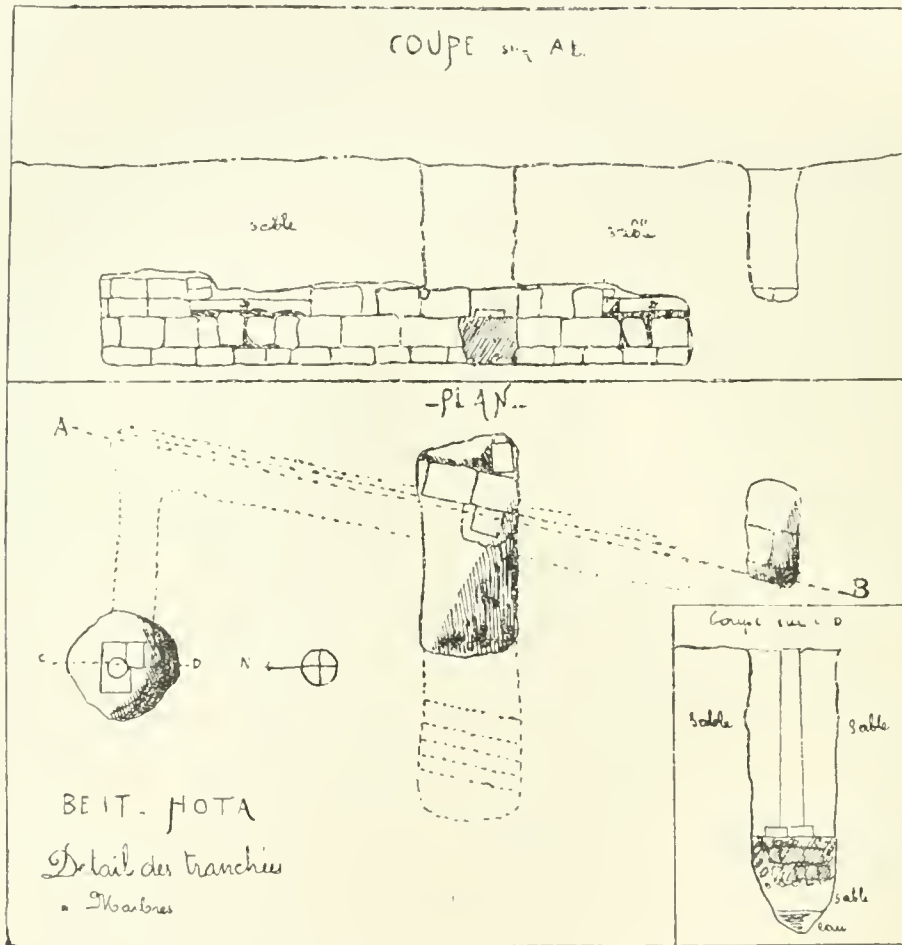 COUPE sur AB
sable
sable
-PLAN-
A
B
C
D
N
Coupe sur C D
sable
sable
sable
eau
BEIT-HOTA
Detail des tranchées
Marbres